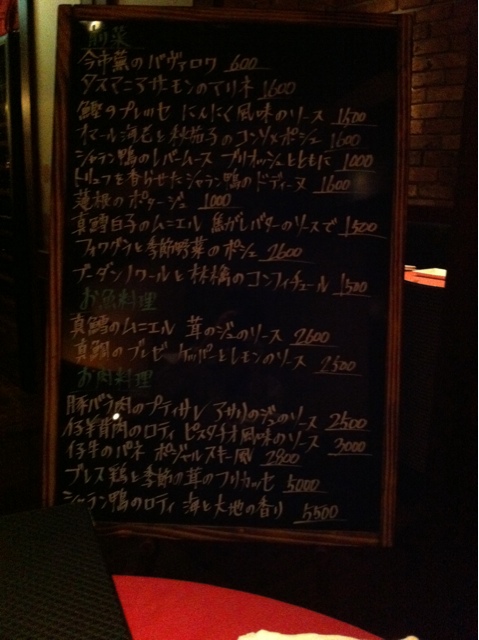 前菜
今市蕪のババァロワ 600
タスマニアサーモンのマリネ 1600
鰹のプレッセ にんにく風味のソース 1500
オマール海老と林茄子のコンソメポシェ 1600
シャラン鴨のレバームース ブリオッシュとともに 1000
トリュフを香らせたシャラン鴨のドディーヌ 1600
蓮根のポタージュ 1000
真鱈白子のムニエル 焦がしバターのソースで 1500
フォワグラと季節野菜のポシェ 2600
ブーダンノワールと林檎のコンフィチュール 1500
お魚料理
真鱈のムニエル 茸のジュのソース 2600
真鯛のブレゼ ケッパーとレモンのソース 2500
お肉料理
豚バラ肉のプティサレ アサリのジュのソース 2500
仔羊背肉のロティ ピスタチオ風味のソース 3000
仔牛のパネ ポジャルスキー風 2800
ブレス鶏と季節の茸のフリカッセ 5000
シャラン鴨のロティ 海と大地の香り 5500